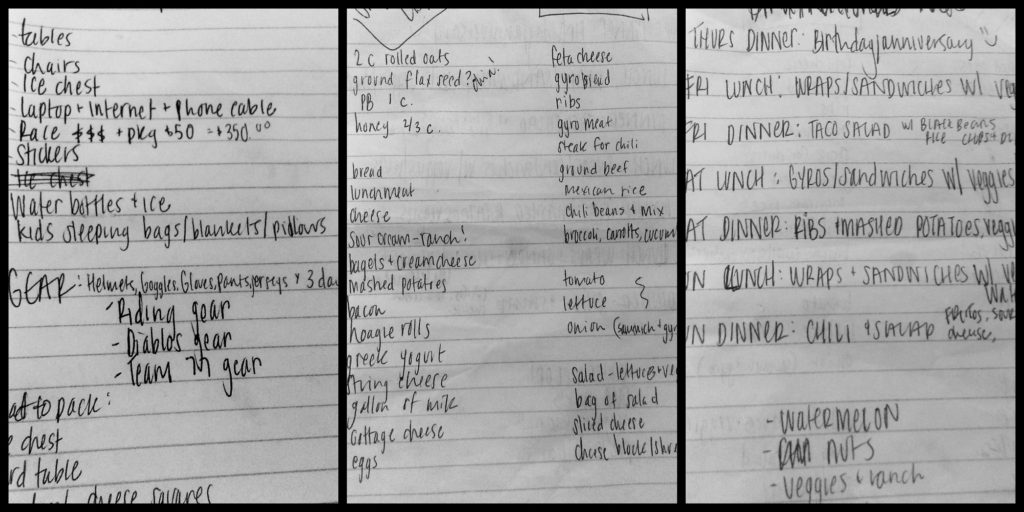 tables
- chairs
- Ice chest
- laptop + internet + phone cable
- Race $$$ + pkg $50 = $350.00
- Stickers
Ice chest
Water bottles + ice
kids sleeping bags/blankets/pillows
GEAR: Helmets, Goggles, Gloves, Pants, jerseys x 3 da
- Riding gear
- Diablos gear
- Team gear
to pack:
chest
rd table
cheese squares
2 c rolled oats
ground flax seed?
PB 1 c.
honey 2/3 c.
bread
lunchmeat
cheese
sour cream - ranch!
bagels + creamcheese
mashed potatoes
bacon
hoagie rolls
greek yogurt
string cheese
gallon of milk
cottage cheese
eggs
feta cheese
gyro bread
ribs
gyro meat
steak for chili
ground beef
mexican rice
chili beans + mix
broccoli, carrots, cucum
tomato
lettuce
onion (sandwich + gy
salad - lettuce + ve
bag of salad
sliced cheese
cheese block/shr
THURS DINNER: Birthday/anniversary
FRI LUNCH: WRAPS/SANDWICHES W/ veg
FRI DINNER: TACO SALAD w/ BLACK BEANS
RICE CHIPS + D
AT LUNCH: GYROS/sandwiches w/ veggies
AT DINNER: RIBS + MASHED POTATOES, vegg
UN LUNCH: WRAPS + SANDWICHES w/ V
UN DINNER: CHILI + SALAD FRITOS, sour
cheese,
- WATERMELON
- nuts
- veggies + ranch